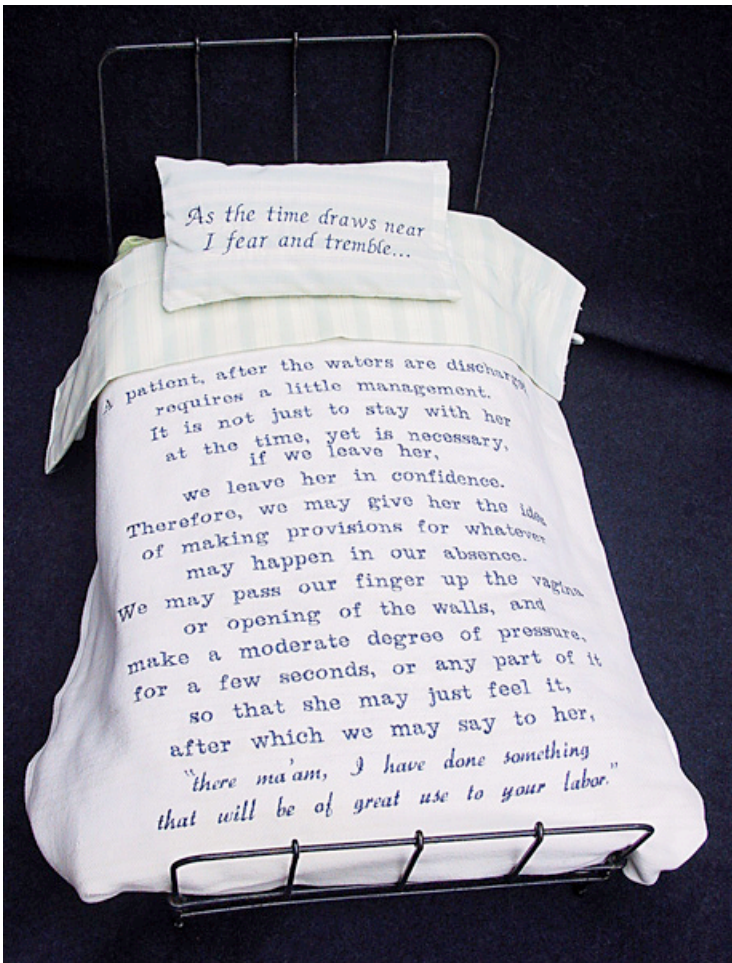 As the time draws near
I fear and tremble...
A patient, after the waters are discharged,
requires a little management.
It is not just to stay with her
at the time, yet is necessary,
if we leave her,
we leave her in confidence.
Therefore, we may give her the idea
of making provisions for whatever
may happen in our absence.
We may pass our finger up the vagina
or opening of the walls, and
make a moderate degree of pressure,
for a few seconds, or any part of it
so that she may just feel it,
after which we may say to her,
"there ma'am, I have done something
that will be of great use to your labor."